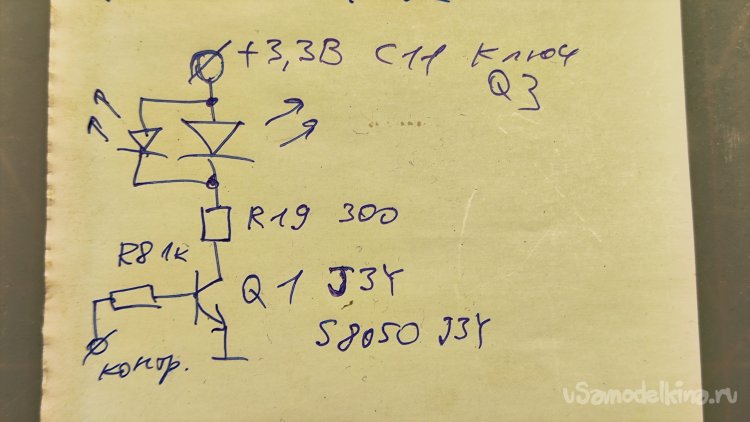 +3,3В С11 Ключ
Q3
R19 300
R8 1к
Q1 J3Y
S8050 J3Y
контр.
vSamodelkina.ru